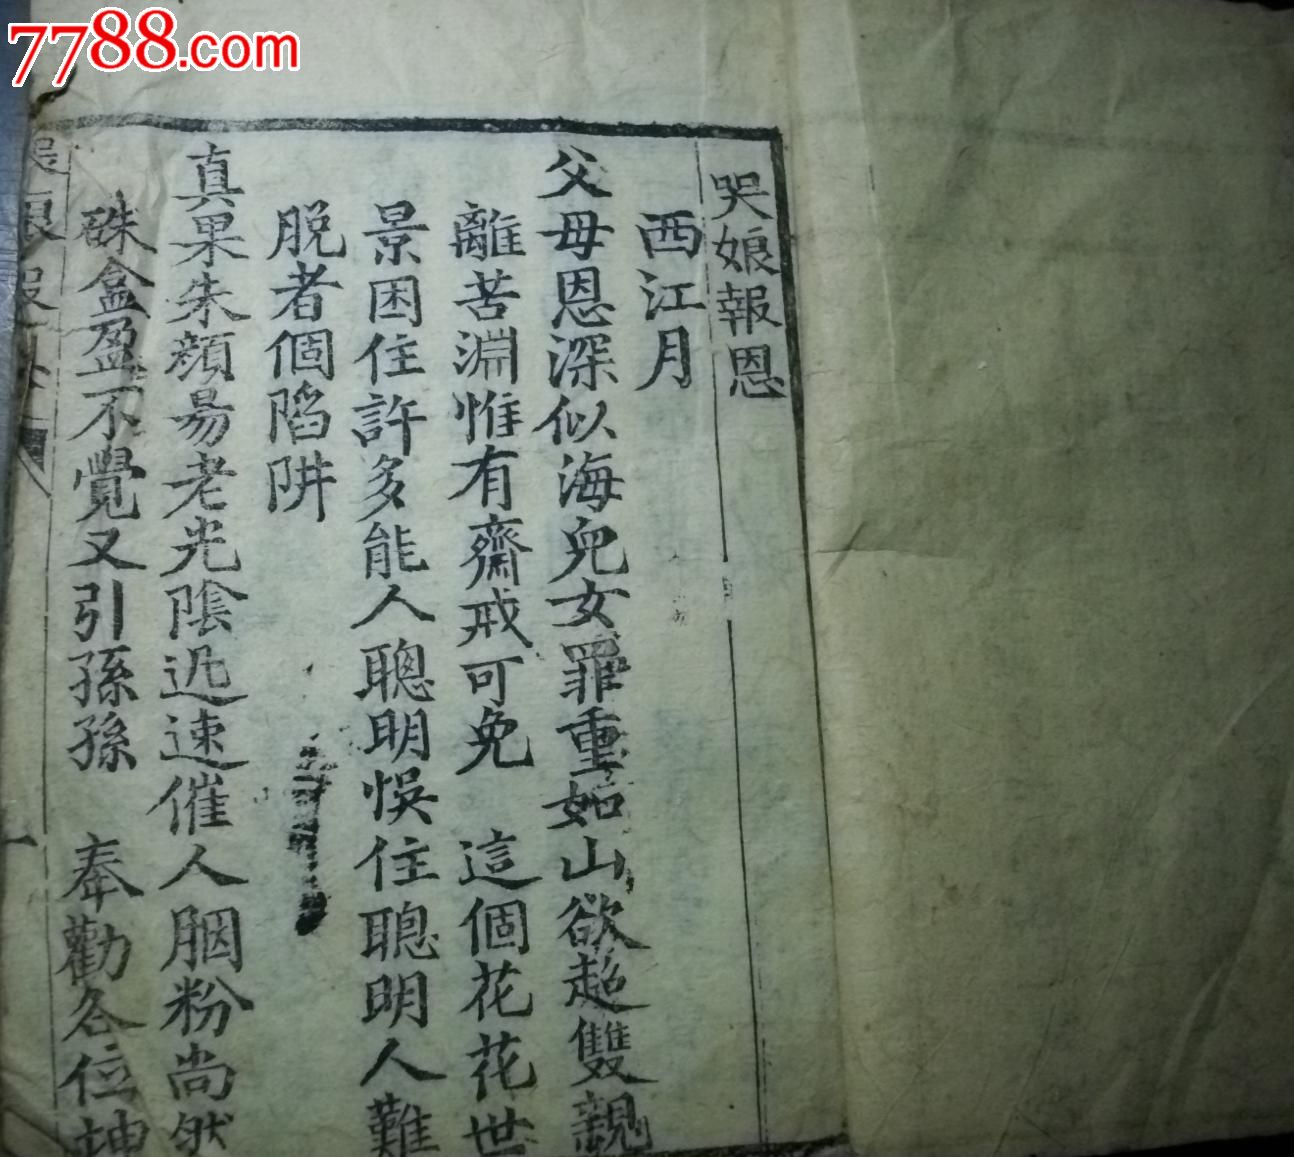 7788.com
哭娘報恩
西江月
父母恩深似海兒女罪重如山欲超雙親
離苦淵惟有齋戒可免　這個花花世
景困住許多能人聰明悞住聰明人難
脱者個陷阱
真果朱顏易老光陰迅速催人胭粉尚然
硃盒盈不覺又引孫孫　奉勸各位坤
哭娘報
一